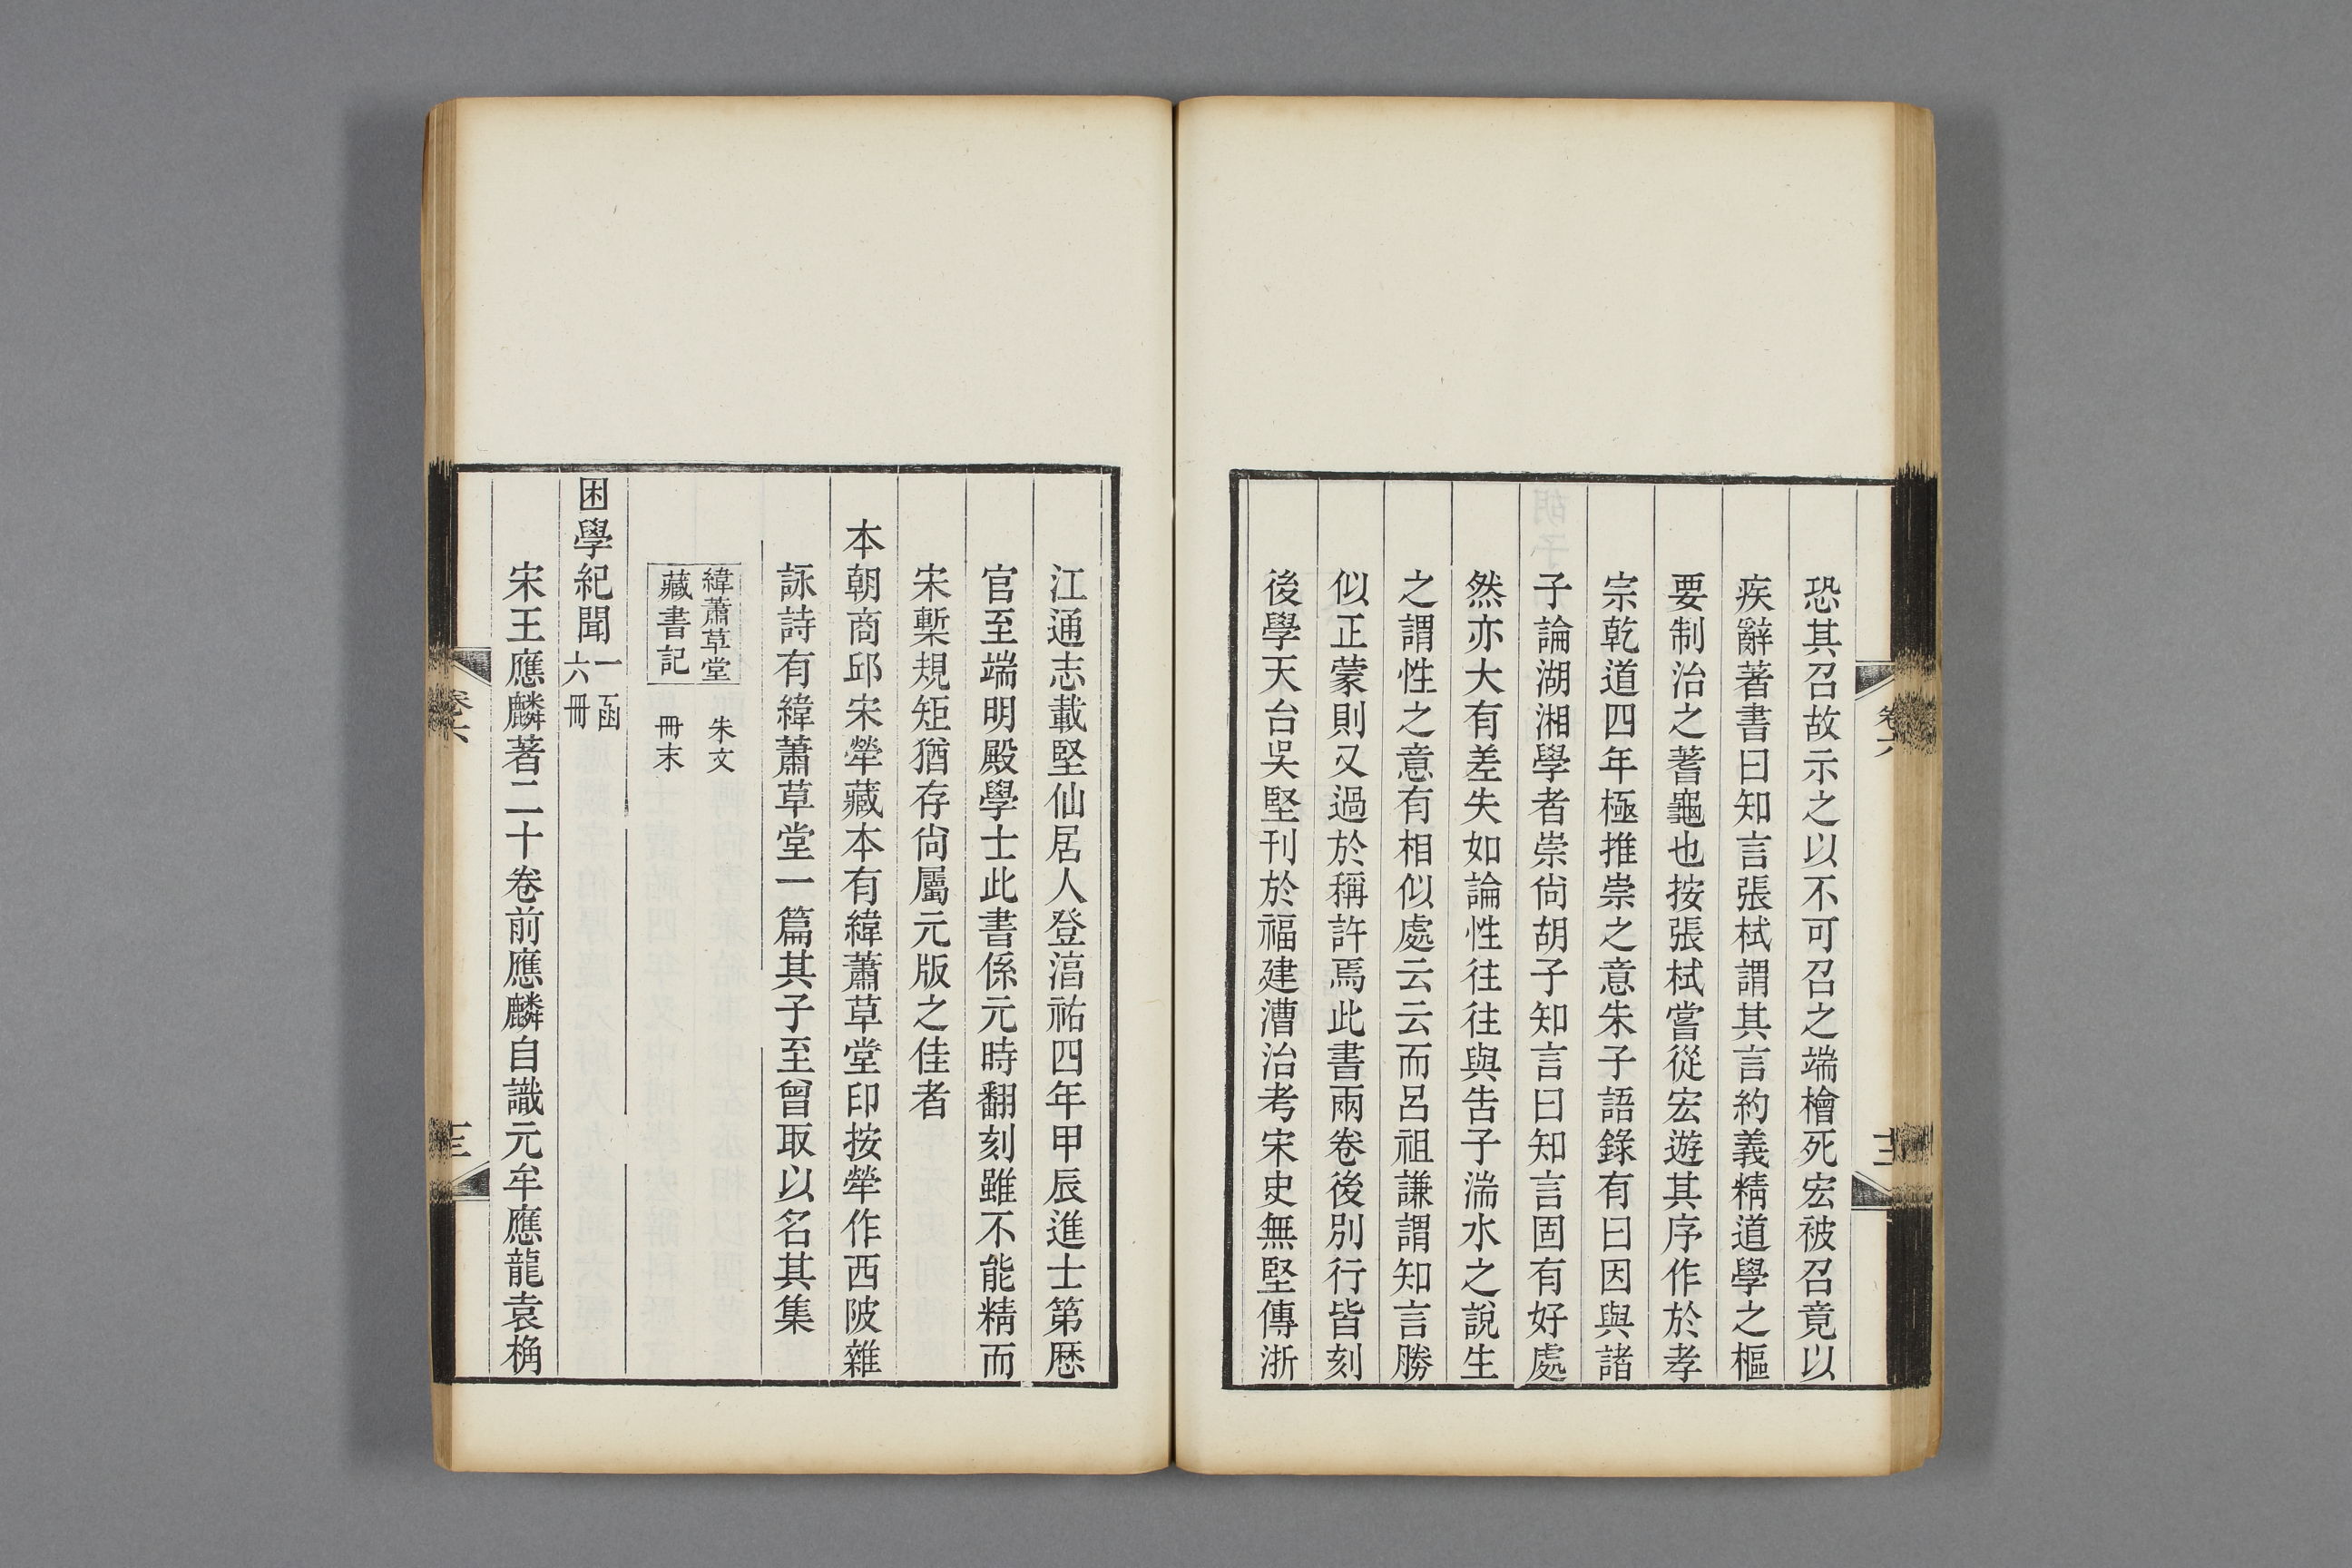 恐其召故示之以不可召之端檜死宏被召竟以
疾辭著書曰知言張栻謂其言約義精道學之樞
要制治之蓍龜也按張栻嘗從宏遊其序作於孝
宗乾道四年極推崇之意朱子語錄有曰因與諸
子論湖湘學者崇尙胡子知言曰知言固有好處
然亦大有差失如論性往往與告子湍水之說生
之謂性之意有相似處云云而呂祖謙謂知言勝
似正蒙則又過於稱許焉此書兩卷後別行皆刻
後學天台吳堅刊於福建漕治考宋史無堅傳浙
江通志載堅仙居人登湻祐四年甲辰進士第歷
官至端明殿學士此書係元時翻刻雖不能精而
宋槧規矩猶存尙屬元版之佳者
本朝商邱宋犖藏本有緯蕭草堂印按犖作西陂雜
詠詩有緯蕭草堂一篇其子至曾取以名其集
緯蕭草堂
藏書記
朱文
冊末
困學紀聞一函
六冊
宋王應麟著二十卷前應麟自識元牟應龍袁桷
卷六